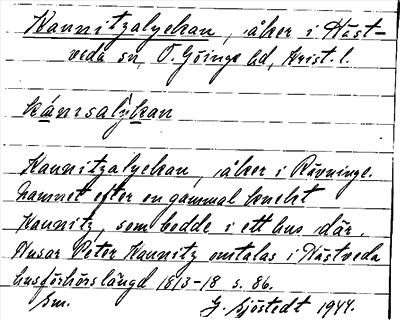 Kannitzalyckan, åker i Häst-
veda sn, Ö. Göinge hd, Krist. l.
kánsalỳkan
Kannitzalyckan, åker i Rävninge.
Namnet efter en gammal knekt
Kannitz, som bodde i ett hus där.
Husar Peter Kannitz omtalas i Hästveda
husförhörslängd 1813-18 s. 86.
Sm. G. Sjöstedt 1944.